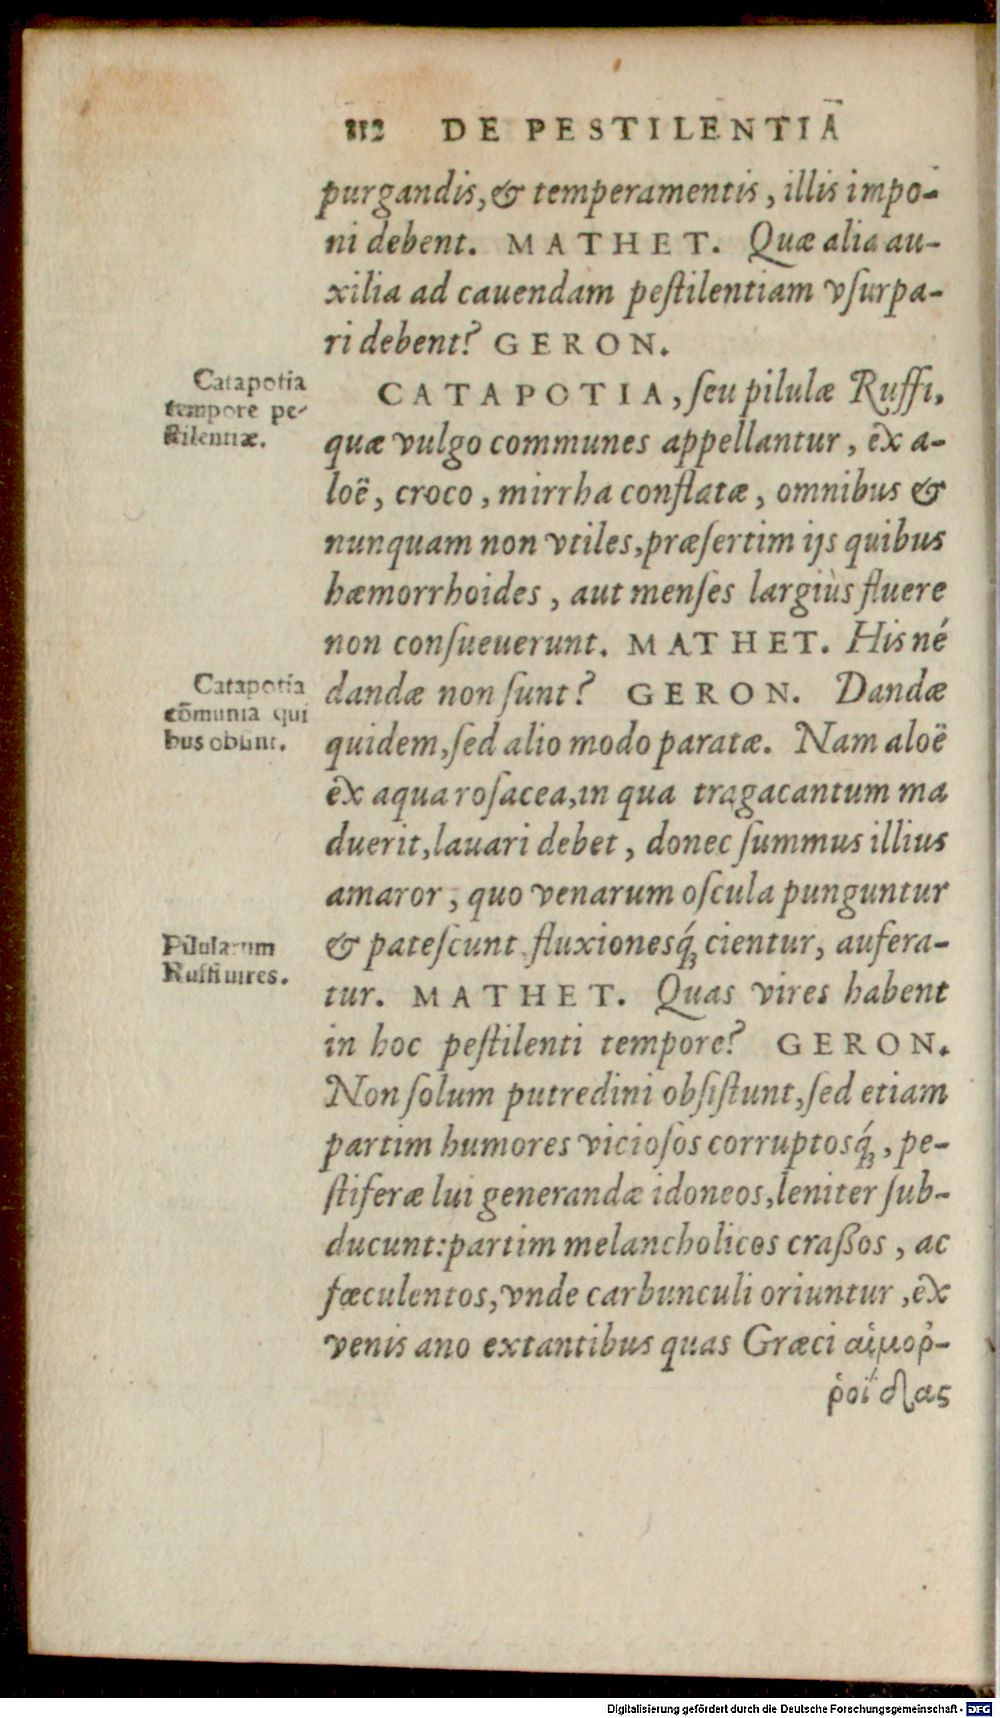 112 DE PESTILENTIA
purgandis, & temperamentis, illis impo-
ni debent. MATHET. Quæ alia au-
xilia ad cauendam peſtilentiam vſurpa-
ri debent? GERON.
Catapotia
tempore pe-
ſtilentiæ.
CATAPOTIA, ſeu pilulæ Ruffi,
quæ vulgo communes appellantur, ex a-
loë, croco, mirrha conflatæ, omnibus &
nunquam non vtiles, præſertim ijs quibus
hæmorrhoides, aut menſes largiùs fluere
non conſueuerunt. MATHET. Hisné
Catapotia
cōmunia qui
bus obſint.
dandæ non ſunt? GERON. Dandæ
quidem, ſed alio modo paratæ. Nam aloë
ex aqua roſacea, in qua tragacantum ma
duerit, lauari debet, donec ſummus illius
amaror, quo venarum oſcula punguntur
Pilularum
Ruffi vires.
& pateſcunt fluxionesq́ꝫ cientur, aufera-
tur. MATHET. Quas vires habent
in hoc peſtilenti tempore? GERON.
Non ſolum putredini obſiſtunt, ſed etiam
partim humores vicioſos corruptosq́ꝫ, pe-
ſtiferæ lui generandæ idoneos, leniter ſub-
ducunt: partim melancholicos craſſos, ac
fæculentos, vnde carbunculi oriuntur, ex
venis ano extantibus quas Græci αἱμοῤ-
ῥοΐδας
Digitalisierung gefördert durch die Deutsche Forschungsgemeinschaft - DFG